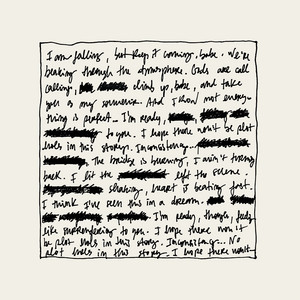 I am falling, but keep it coming, babe. We're
breaking through the atmosphere. Gods are call
calling, climb up, babe, and take
you as my souvenir. And I know not every-
thing is perfect. I'm ready,
to you. I hope there won't be plot
holes in this story. Inconsistency...
The bridge is burning, I ain't turning
back. I lit the left the scene.
shaking, heart is beating fast.
I think I've seen this in a dream.
I'm ready, though, feels
like surrendering to you. I hope there won't
be plot holes in this story. Inconsistency... No
plot holes in this story. I hope there wont